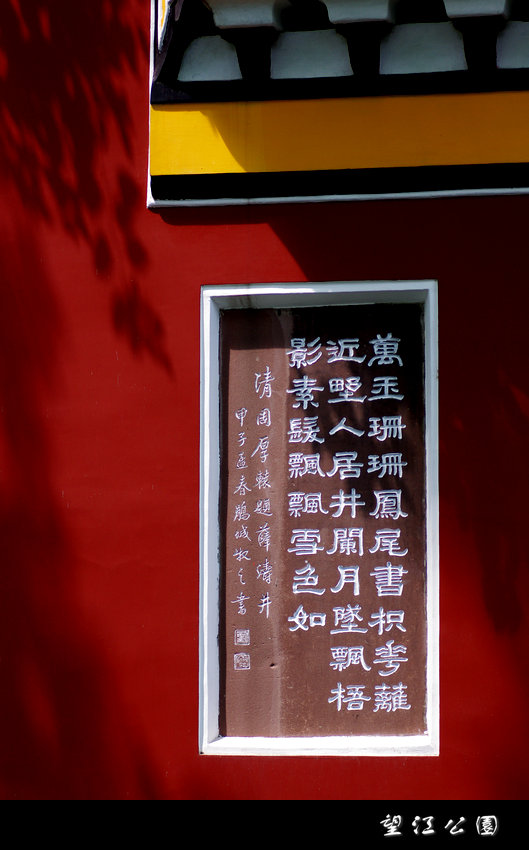 萬玉珊珊鳳尾書枳花蘺
近野人居井闌月墜飄梧
影素髮飄飄雪色如
清周厚轅題薛濤井
甲子孟春鵬城牧之書
望江公園